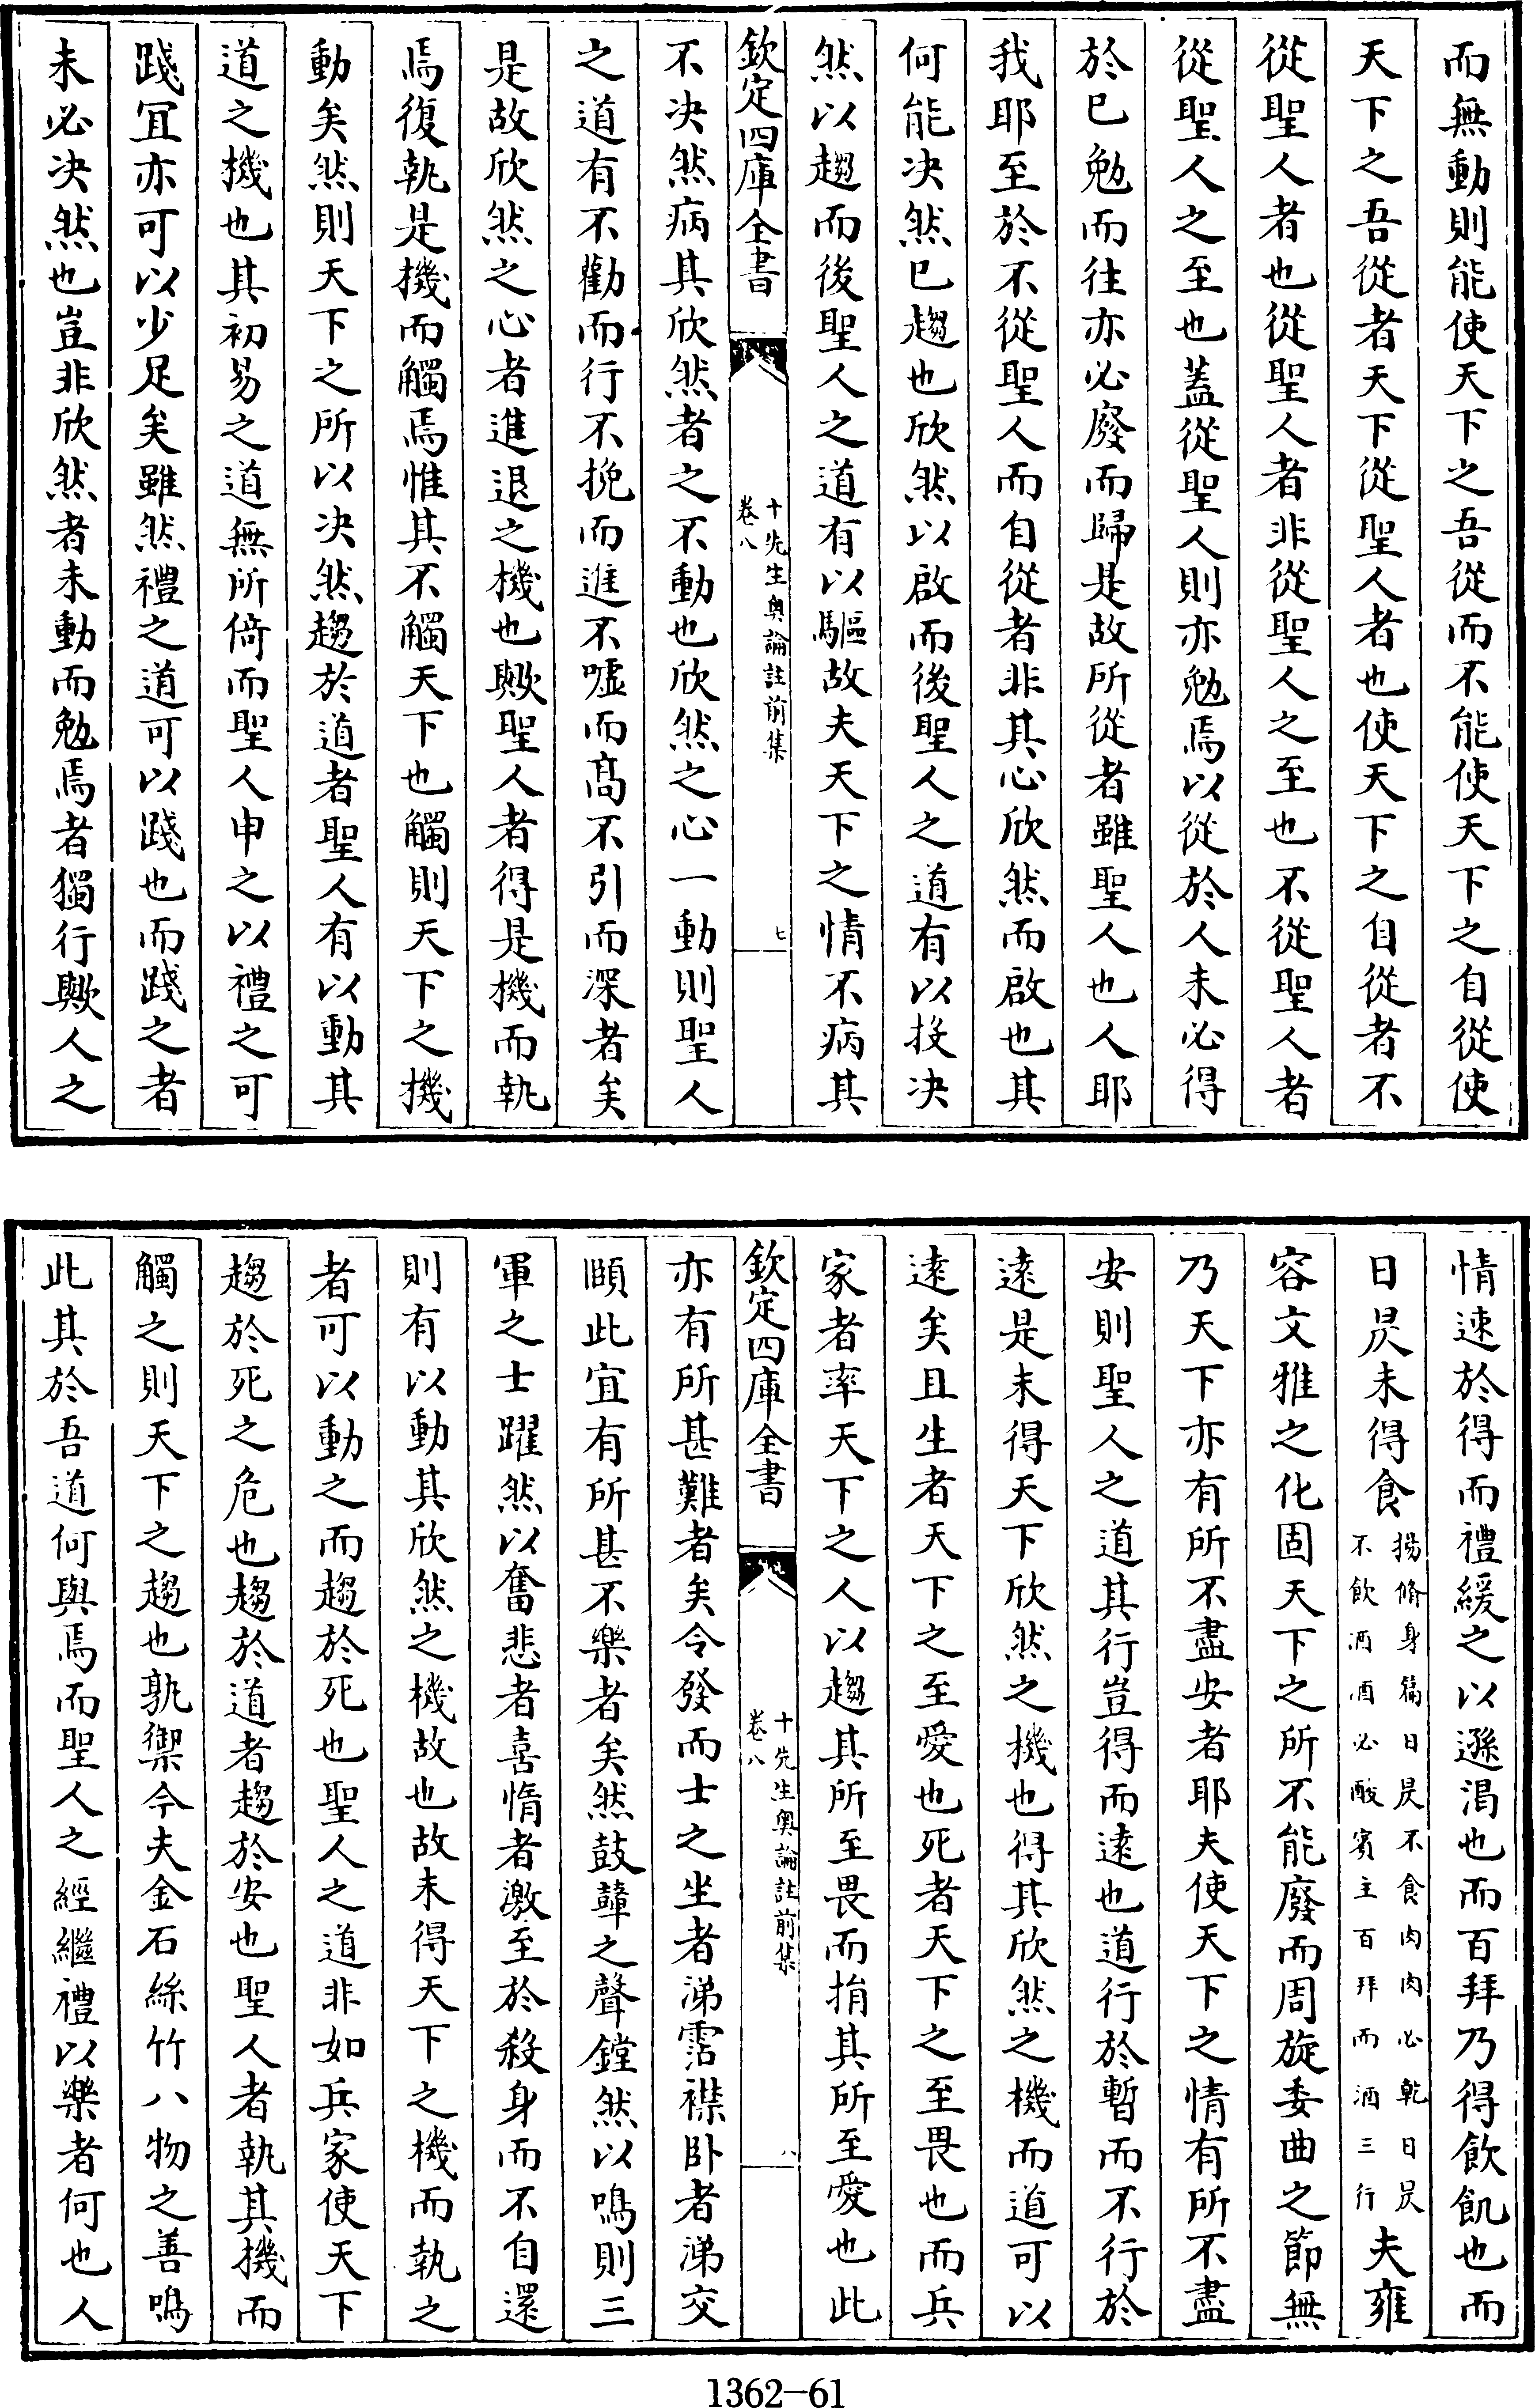 而無動則能使天下之吾從而不能使天下之自從使
天下之吾從者天下從聖人者也使天下之自從者不
從聖人者也從聖人者非從聖人之至也不從聖人者
從聖人之至也蓋從聖人則亦勉焉以從於人未必得
於已勉而往亦必廢而歸是故所從者雖聖人也人耶
我耶至於不從聖人而自從者非其心欣然而啟也其
何能决然已趨也欣然以啟而後聖人之道有以投决
然以趨而後聖人之道有以驅故夫天下之情不病其
欽定四庫全書
十先生奥論註前集
卷八
七
不决然病其欣然者之不動也欣然之心一動則聖人
之道有不勸而行不挽而進不嘘而髙不引而深者矣
是故欣然之心者進退之機也歟聖人者得是機而執
焉復執是機而觸焉惟其不觸天下也觸則天下之機
動矣然則天下之所以决然趨於道者聖人有以動其
道之機也其初易之道無所倚而聖人申之以禮之可
踐冝亦可以少足矣雖然禮之道可以踐也而踐之者
未必决然也豈非欣然者未動而勉焉者獨行歟人之
情速於得而禮緩之以遜渴也而百拜乃得飲飢也而
日昃未得食
揚脩身篇日昃不食肉肉必乾日昃
不飲酒酒必酸賓主百拜而酒三行
夫雍
容文雅之化固天下之所不能廢而周旋委曲之節無
乃天下亦有所不盡安者耶夫使天下之情有所不盡
安則聖人之道其行豈得而逺也道行於暫而不行於
逺是未得天下欣然之機也得其欣然之機而道可以
逺矣且生者天下之至愛也死者天下之至畏也而兵
家者率天下之人以趨其所至畏而捐其所至愛也此
欽定四庫全書
十先生奥論註前集
卷八
八
亦有所甚難者矣令發而士之坐者涕霑襟卧者涕交
頤此宜有所甚不樂者矣然鼓鼙之聲鏜然以鳴則三
軍之士躍然以奮悲者喜惰者激至於殺身而不自還
則有以動其欣然之機故也故未得天下之機而執之
者可以動之而趨於死也聖人之道非如兵家使天下
趨於死之危也趨於道者趨於安也聖人者執其機而
觸之則天下之趨也孰禦今夫金石絲竹八物之善鳴
此其於吾道何與焉而聖人之經繼禮以樂者何也人
1362-61